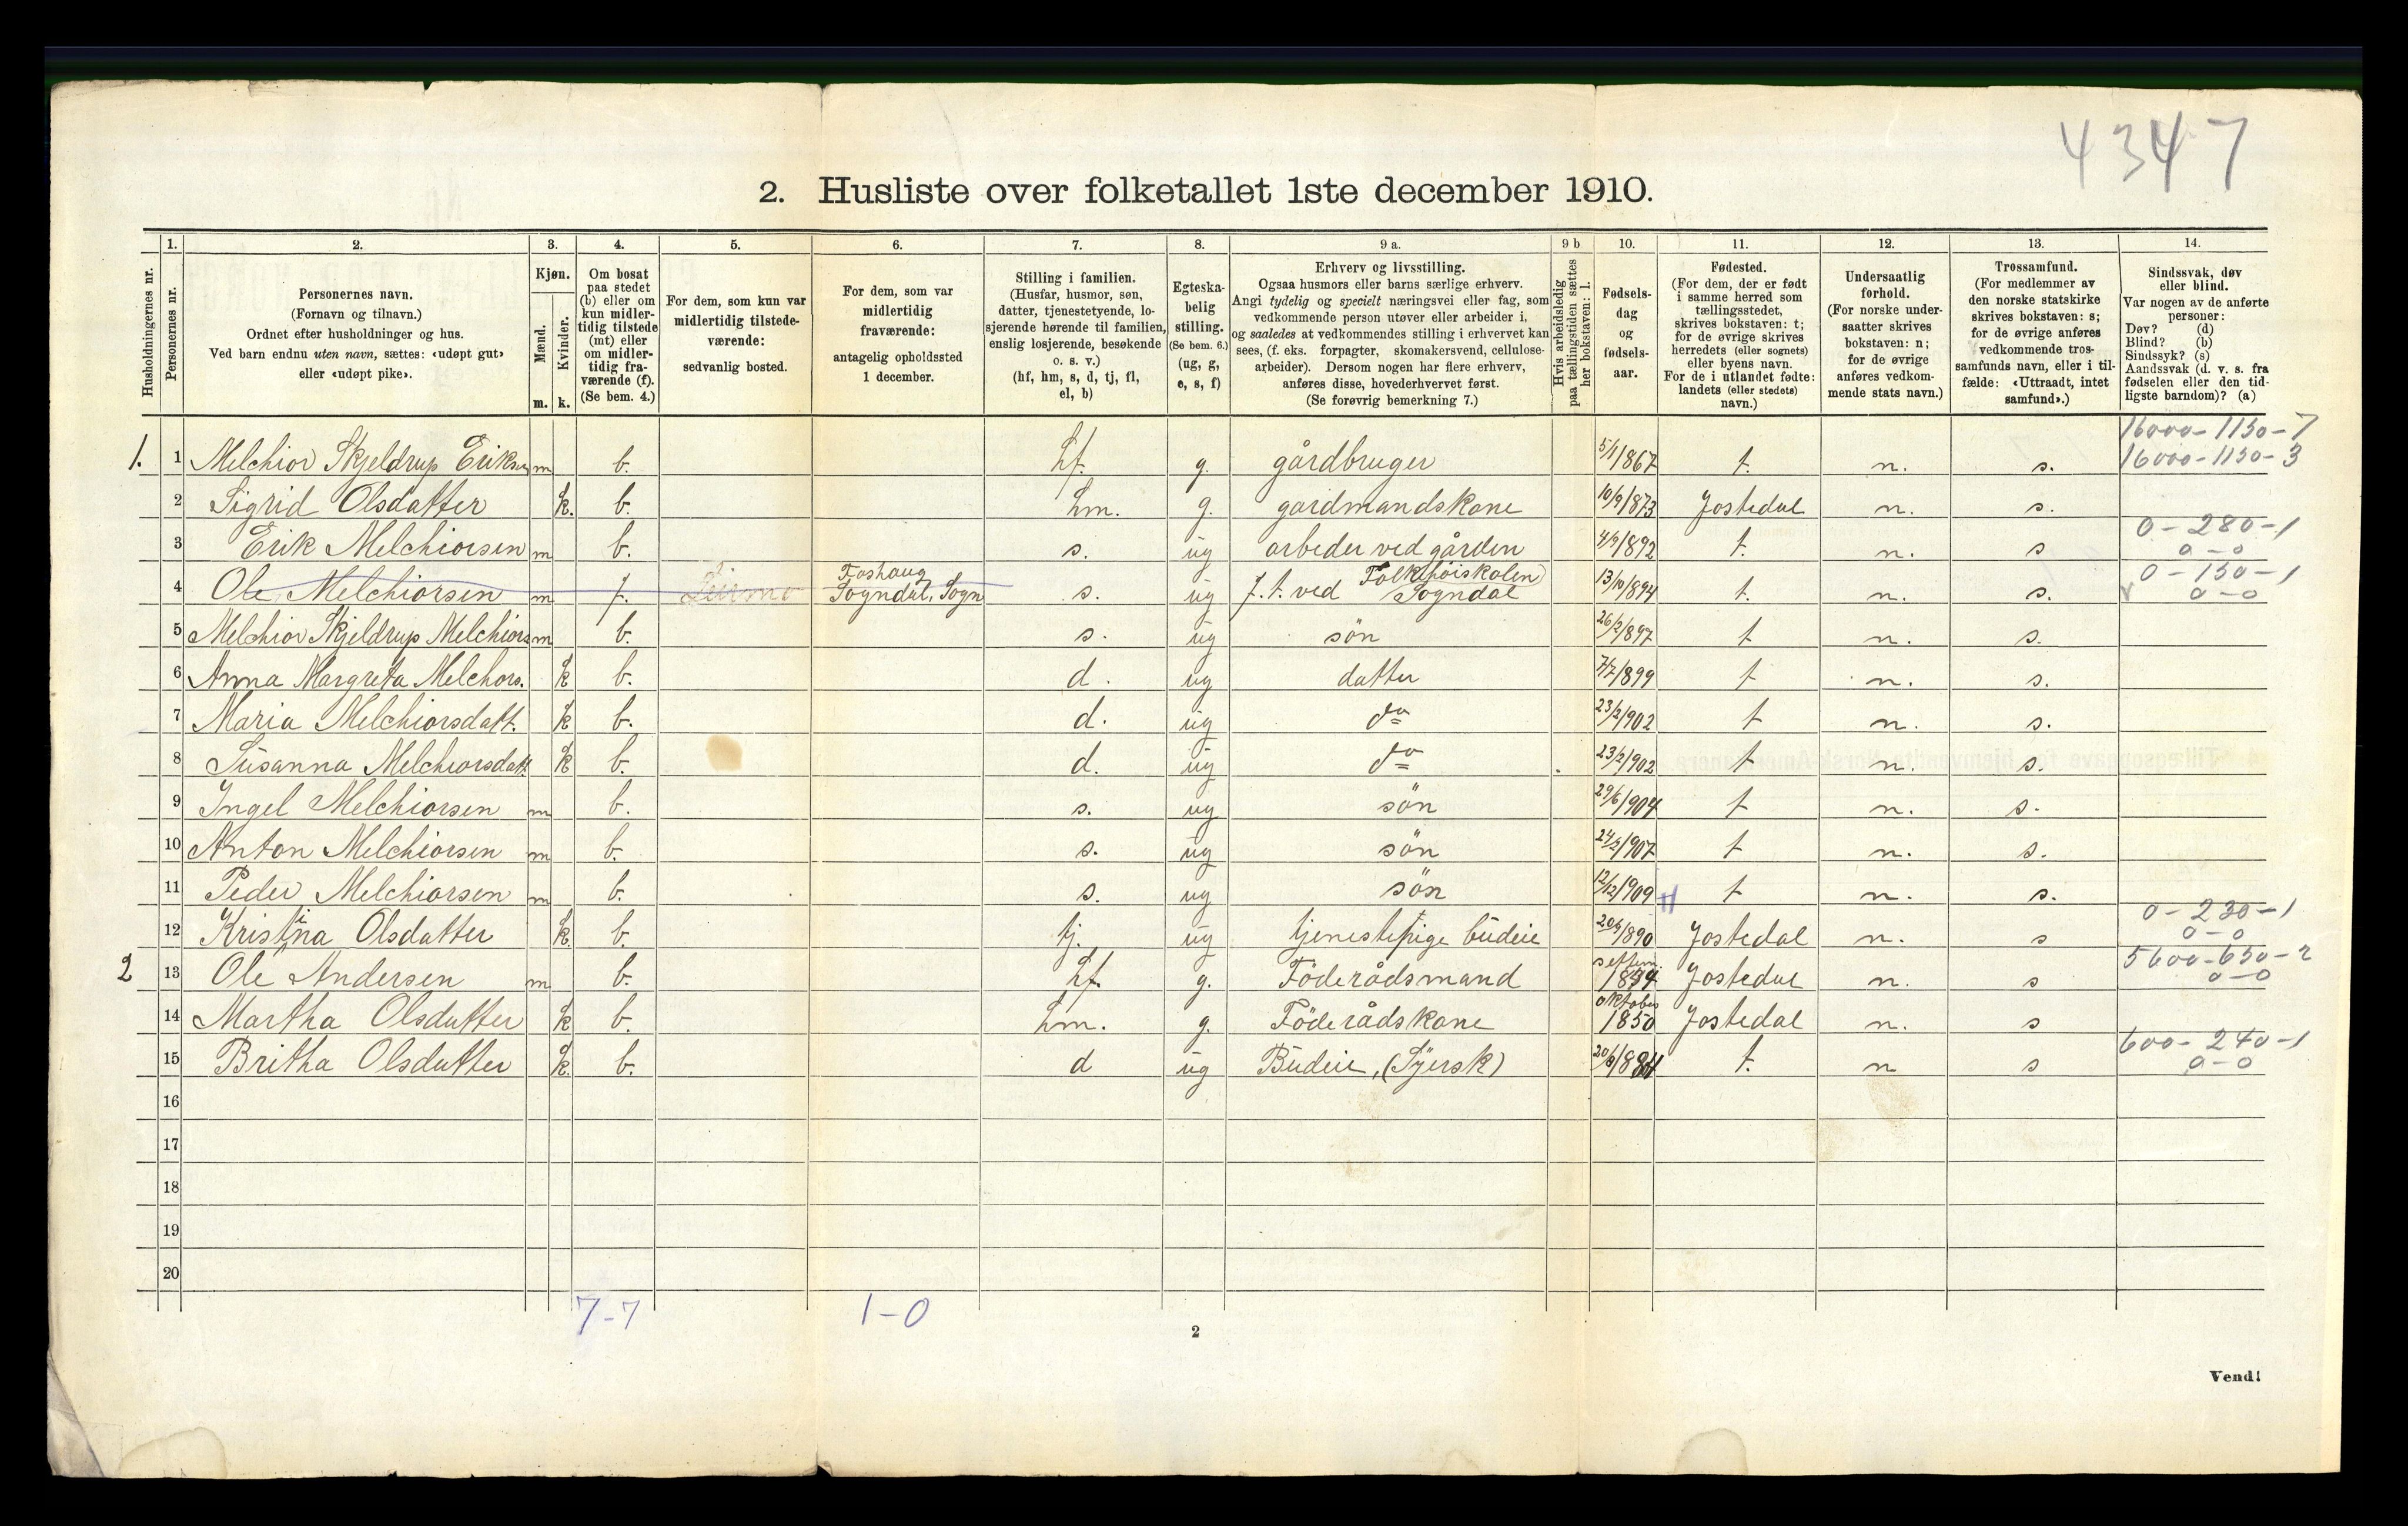 4347
2. Husliste over folketallet 1ste december 1910.
Husholdningernes nr.
1.
Personernes nr.
2.
Personernes navn.
(Fornavn og tilnavn.)
Ordnet efter husholdninger og hus.
Ved barn endnu uten navn, sættes: «udøpt gut»
eller «udøpt pike».
3.
Kjøn.
Mænd.
Kvinder.
m. k.
4.
Om bosat
paa stedet
(b) eller om
kun midler-
tidig tilstede
(mt) eller
om midler-
tidig fra-
værende (f).
(Se bem. 4.)
5.
For dem, som kun var
midlertidig tilstede-
værende:
sedvanlig bosted.
6.
For dem, som var
midlertidig
fraværende:
antagelig opholdssted
1 december.
7.
Stilling i familien.
(Husfar, husmor, søn,
datter, tjenestetyende, lo-
sjerende hørende til familien,
enslig losjerende, besøkende
o. s. v.)
(hf, hm, s, d, tj, fl,
el, b)
8.
Egteska-
belig
stilling.
(Se bem. 6.)
(ug, g,
e, s, f)
9 a.
Erhverv og livsstilling.
Ogsaa husmors eller barns særlige erhverv.
Angi tydelig og specielt næringsvei eller fag, som
vedkommende person utøver eller arbeider i,
og saaledes at vedkommendes stilling i erhvervet kan
sees, (f. eks. forpagter, skomakersvend, cellulose-
arbeider). Dersom nogen har flere erhverv,
anføres disse, hovederhvervet først.
(Se forøvrig bemerkning 7.)
9 b
Hvis arbeidsledig
paa tællingstiden sættes
her bokstaven: l.
10.
Fødsels-
dag
og
fødsels-
aar.
11.
Fødested.
(For dem, der er født
i samme herred som
tællingsstedet,
skrives bokstaven: t;
for de øvrige skrives
herredets (eller sognets)
eller byens navn.
For de i utlandet fødte:
landets (eller stedets)
navn.)
12.
Undersaatlig
forhold.
(For norske under-
saatter skrives
bokstaven: n;
for de øvrige
anføres vedkom-
mende stats navn.)
13.
Trossamfund.
(For medlemmer av
den norske statskirke
skrives bokstaven: s;
for de øvrige anføres
vedkommende tros-
samfunds navn, eller i til-
fælde: «Uttraadt, intet
samfund».)
14.
Sindssvak, døv
eller blind.
Var nogen av de anførte
personer:
Døv? (d)
Blind? (b)
Sindssyk? (s)
Aandssvak (d. v. s. fra
fødselen eller den tid-
ligste barndom)? (a)
16000-1150-7
1. 1 Melchior Skjeldrup Eriksen m b. hf. g. gårdbruger 5/1 1867 t. n. s. 16000-1150-3
2 Sigrid Olsdatter k. b. hm. g. gardmandskone 10/9 1873 Jostedal n. s.
0-280-1
3 Erik Melchiorsen m b. s. ug arbeder ved gården 4/9 1892 t. n. s 0-0
Foshaug Folkehöiskolen 0-150-1
4 Ole Melchiorsen m f. Sogndal, Sogn s. ug f.t. ved Sogndal 13/10 1894 t. n. s. 0-0
5 Melchior Skjeldrup Melchiors m b. s. ug sön 26/2 1897 t n. s.
6 Anna Margreta Melchors. k b. d. ug datter 7/7 1899 t n. s.
7 Maria Melchiorsdatt. k b. d. ug do 23/2 1902 t n. s.
8 Susanna Melchiorsdatt k b. d. ug do 23/2 1902 t n. s.
9 Ingel Melchiorsen m b. s. ug sön 29/6 1904 t n. s.
10 Anton Melchiorsen m b. s. ug sön 24/5 1907 t n. s.
11 Peder Melchiorsen m b. s. ug sön 12/12 1909 t n. s.
0-230-1
12 Kristina Olsdatter k. b. tj. ug tjenestepige budeie 20/4 1890 Jostedal n. s 0-0
septem. 5600-650-2
2 13 Ole Andersen m b. hf. g. Föderådsmand 1854 Jostedal n. s 0-0
oktober
14 Martha Olsdatter k b. hm. g. Föderådskone 1850 Jostedal n. s
600-240-1
15 Britha Olsdatter k. b. d ug Budeie, (Syersk) 20/8 1884 t. n s 0-0
16
17
18
19
20
7-7 1-0
2
Vend!